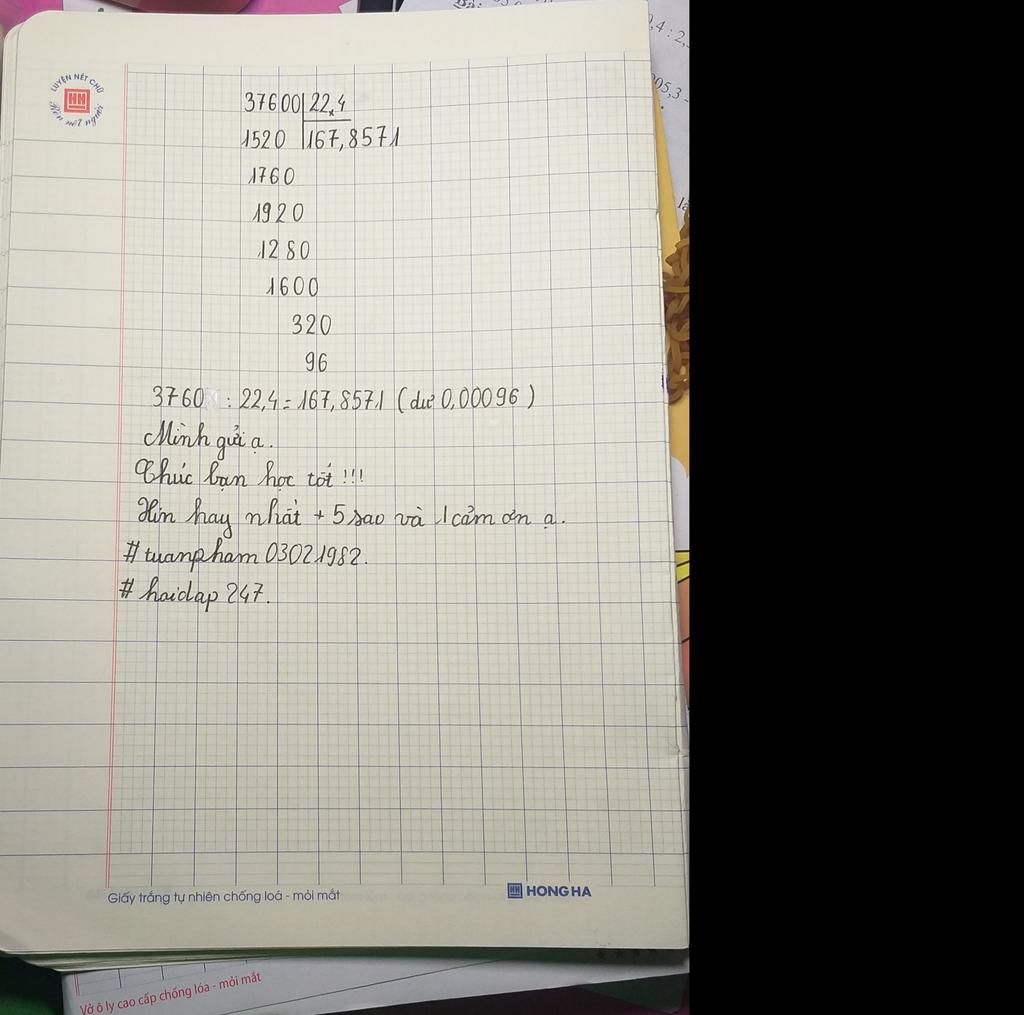 LUYỆN NÉT CHỮ
HN
Rèn nết người
37600 22,4
1520 167,8571
1760
1920
1280
1600
320
96
3760 : 22,4 = 167,8571 (dư 0,00096)
Mình gửi ạ.
Chúc bạn học tốt !!!
Xin hay nhất + 5 sao và 1 cảm ơn ạ.
# tuanpham 03021982.
# hoidap 247.
Giấy trắng tự nhiên chống loá - mỏi mắt
HN HONG HA
Vở ô ly cao cấp chống lóa - mỏi mắt
,4 : 2,
05,3 -